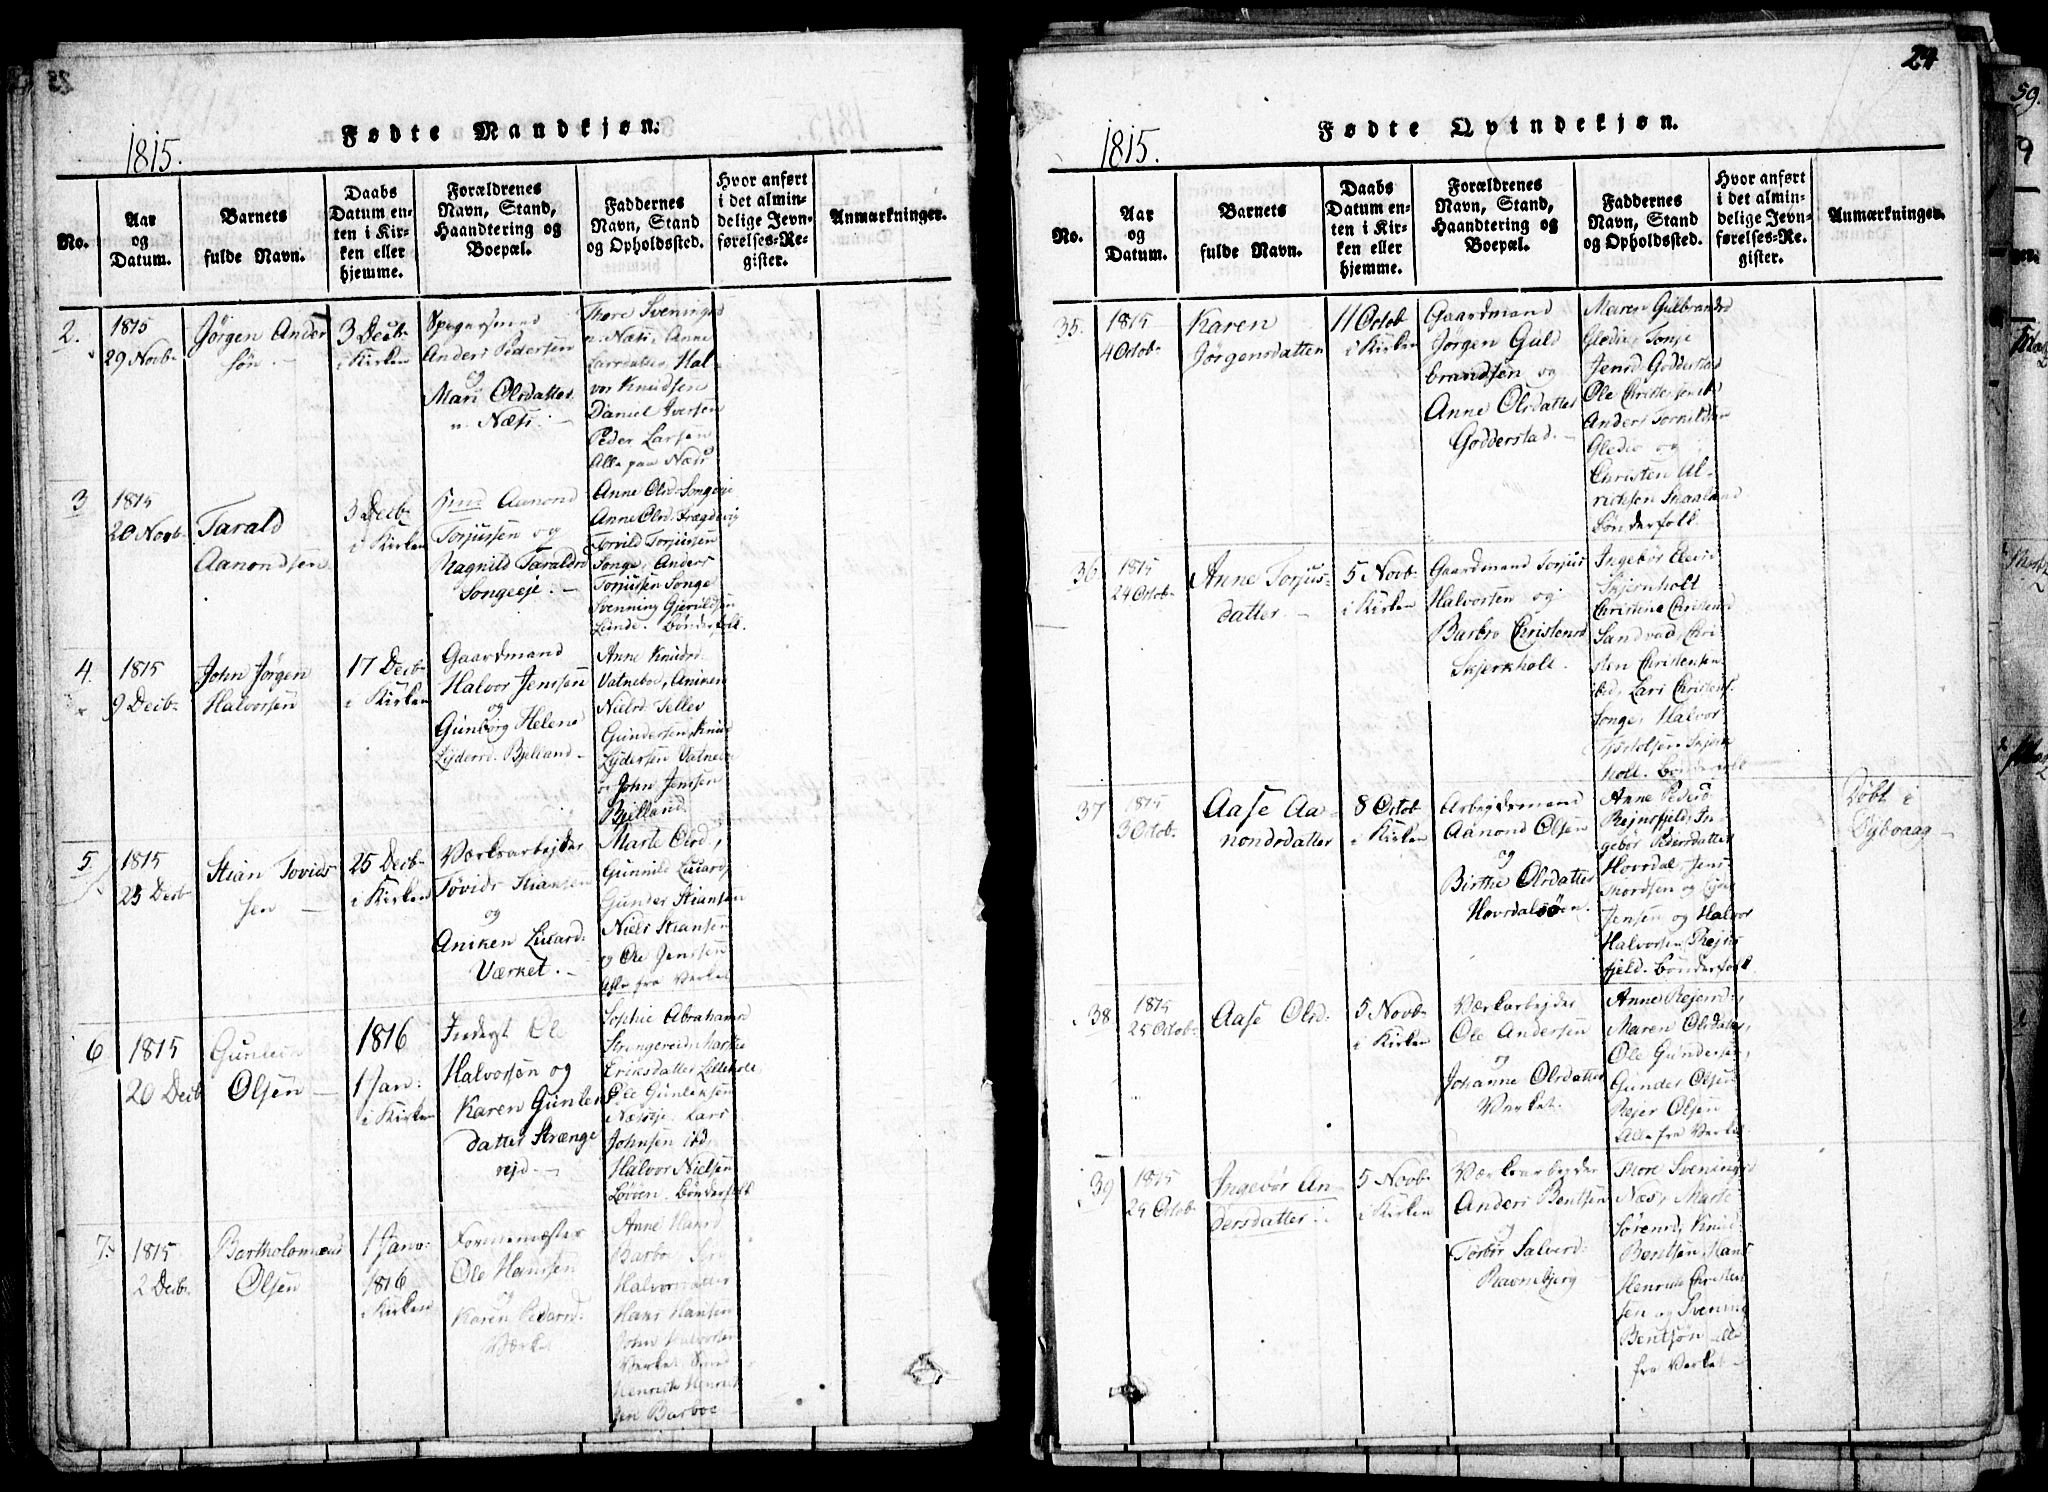 Fødte Mandkjøn.
1815.
No.
Aar
og
Datum.
Barnets
fulde Navn.
Daabs
Datum en-
ten i Kir-
ken eller
hjemme.
Forældrenes
Navn, Stand,
Haandtering og
Boepæl.
Faddernes
Navn, Stand
og Opholdssted.
Hvor anført
i det almin-
delige Jevn-
førelses-Re-
gister.
Anmærkninger.
2.
1815
29 Novb
Jørgen Ander
søn.
3 Decb
i Kirken
Anders Pedersen
og
Mari Olsdatter
Næss.
Thore Svenings
Næss, Anne
Larsdatter, Hal-
vor Knudsen
Daniel Iversen
Peder Larsen
Alle paa Næss
3
1815
20 Novb
Tarald
Aanondsen
3 Decb
i Kirken
Aanond
Torjussen og
Ragnild Taraldsd
Songeeje.
Anne Olsd Songeeje
Anne Olsd
Torvild Torjussen
Songe, Anders
Torjussen Songe
Svenning
Lunde. Bønderfolk.
4.
1815
9 Decb
John Jørgen
Halvorsen
17 Decb
i Kirken
Gaardmand
Halvor Jensen
og
Gunborg Helene
Zyders. Bjelland
Anne Knuds
Vatneboe, Aniken
Nielsd
Gundersen, Knud
Zydersen Vatnebo
John Jensen
Bjelland.
5.
1815
23 Decb
Stian Tovids
sen
25 Decb
i Kirken
Værksarbejder
Tovids Stiansen
og
Aniken Livard
Værket.
Marte Olsd,
Gunnild Livards
Gunder Stiansen
Niels Stiansen
og Ole Jensen
Alle fra Verket
6
1815
20 Decb
Gunlein
Olsen
1816
1 Jan:
i Kirken
Inderst Ole
Halvorsen og
Karen Gunles
datter Strænge
rejd.
Sophie Abrahamsd
Strengereid, Marthe
Eriksdatter Lilleholt,
Ole Gunleksen
Lars
Johnsen ibd,
Halvor Nielsen
Løvøen. Bønderfolk
7.
1815
2 Decb
Bartholomæus
Olsen
1 Janv:
1816
i Kirken
Formemester
Ole Hansen
og
Karen Pedersd
Værket
Anne Hansd
Barboe
Halvorsdatter
Hans Hansen
John Halvorsen
Verket
Henrik Henrik
sen Barboe
24
Fødte Qvindekjøn.
1815.
No.
Aar
og
Datum.
Barnets
fulde Navn.
Daabs
Datum en-
ten i Kir-
ken eller
hjemme.
Forældrenes
Navn, Stand,
Haandtering og
Boepæl.
Faddernes
Navn, Stand
og Opholdssted.
Hvor anført
i det almin-
delige Jevn-
førelses-Re-
gister.
Anmærkninger.
35.
1815
4 Octob
Karen
Jørgensdatter
11 Octob
i Kirken
Gaardmand
Jørgen Guld
brandsen og
Anne Olsdatter
Godderstad.
Maren Gulbrandsd
Gledie, Tonje
Jensd Godderstad
Ole Christensen
Anders
Gledie og
Christen Al-
richsen Skaaland
Bønderfolk.
36
1815
24 Octob
Anne Torjus-
datter.
5 Novb
i Kirken
Gaardmand Torjus
Halvorsen og
Barbro Christensd
Skjerkholt.
Ingebør
Skjerkholt
Christine Christensd
Sandvad, Chri-
sten Christensen
ibd, Lars Christens.
Songe, Halvor
holt. Bønderfolk
37
1815
3 Octob
Aase Aa-
nondsdatter
8 Octob
i Kirken
Arbejdsmand
Aanond Olsen
og
Birthe Olsdatter
Hovrdalsøen.
Anne Pedersd
Rejnsfjeld, In-
gebør Pedersdatter
Hovrdal, Jens
Jensen og Halvor
Halvorsen, Rejns
fjeld. Bønderfolk
Døbt i
Dybvaag
38
1815
25 Octob
Aase Olsd:
5 Novb
i Kirken
Værksarbejder
Ole Andersen
og
Johanne Olsdatter
Verket.
Anne Rejersd:,
Maren Olsdatter,
Ole Gundersen,
Gunder Olsen
Rejer Olsen
Alle fra Verket
39
1815
24 Octob
Ingebør An-
dersdatter
5 Novb
i Kirken
Værksarbejder
Anders Bentsen
og
Torbør Salvesd:
Ravnebjerg
Thore Sveningsd
Næs, Marte
Sørensd, Knud
Bentsen, Hans
Henrik Christen
sen og Svening
Bentsøn alle
fra Verket